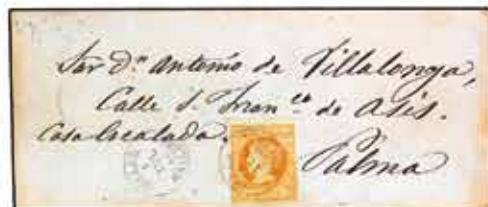 Sor Dn Antonio de Villalonga,
Calle S. Franco de Asis.
Casa
Palma